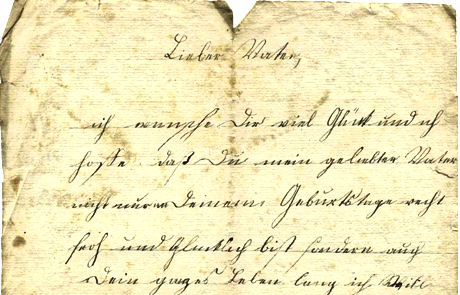 Lieber Vater,
ich wunsche Dir viel Glück und ich
hoffe daß Du mein geliebter Vater
nicht nur an Deinem Geburtstage recht
froh und glücklich bist sondern auch
Dein ganzes Leben lang ich